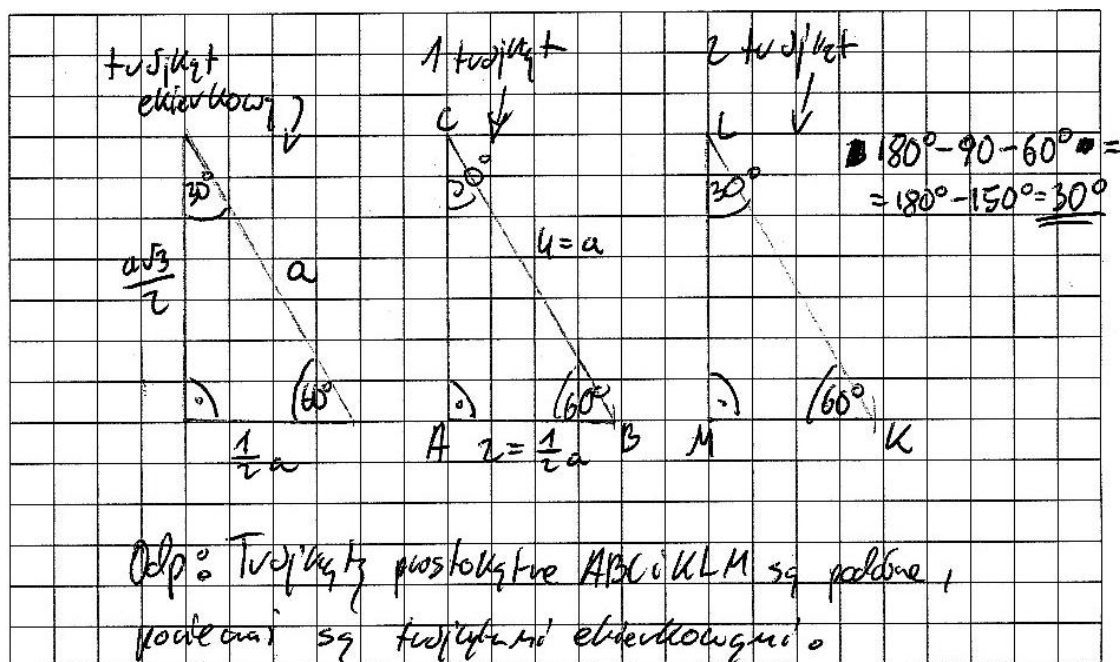 trójkąt
ekierkowy
30°
a√3/2
a
60°
1/2 a
1 trójkąt
C
30°
4=a
60°
A 2=1/2a B
2 trójkąt
L
30°
60°
M K
180°-90-60° =
=180°-150°=30°
Odp: Trójkąty prostokątne ABC i KLM są podobne,
ponieważ są trójkątami ekierkowymi.